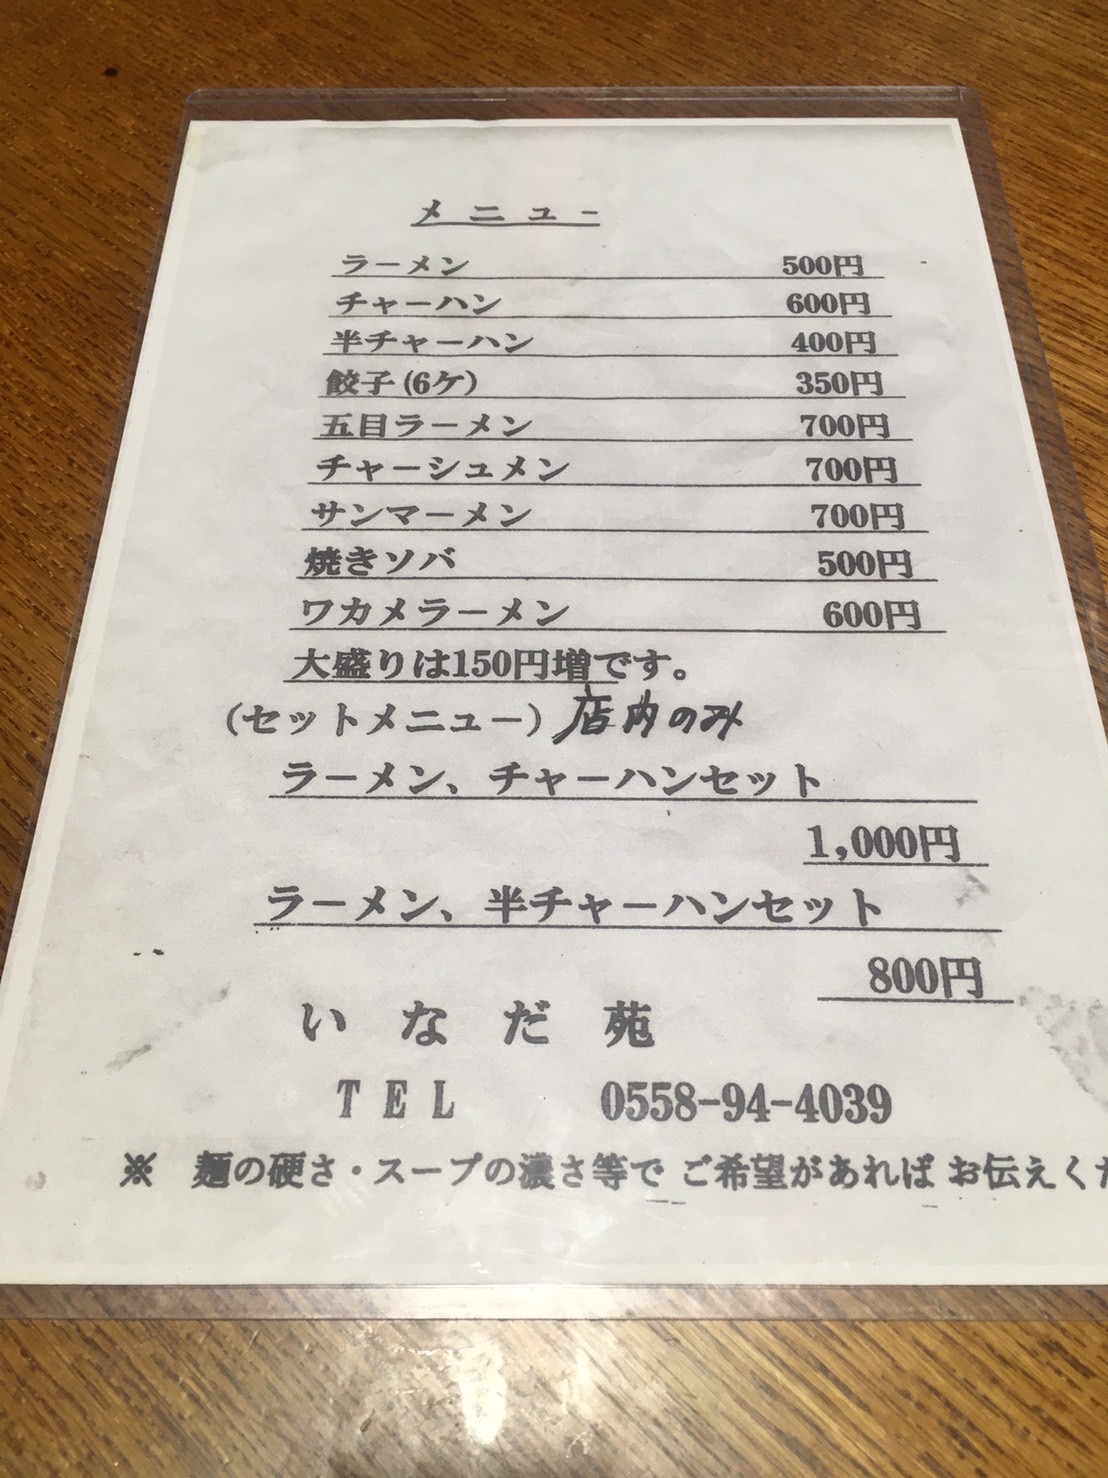 メニュー
ラーメン 500円
チャーハン 600円
半チャーハン 400円
餃子(6ケ) 350円
五目ラーメン 700円
チャーシュメン 700円
サンマーメン 700円
焼きソバ 500円
ワカメラーメン 600円
大盛りは150円増です。
(セットメニュー) 店内のみ
ラーメン、チャーハンセット
1,000円
ラーメン、半チャーハンセット
800円
いなだ苑
TEL 0558-94-4039
※ 麺の硬さ・スープの濃さ等で ご希望があれば お伝えくだ